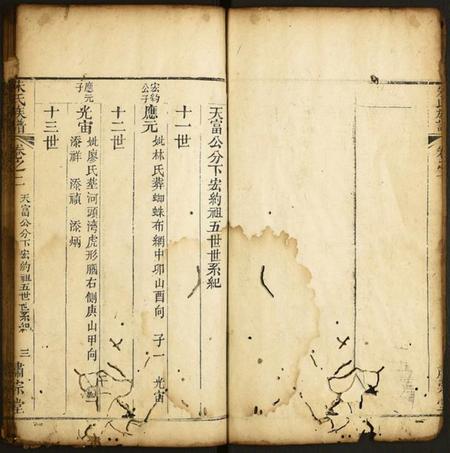 天富公分下宏約祖五世世系紀
十一世
宏約公子
應元 妣林氏葬蜘蛛布網中卯山酉向 子一 光宙
十二世
應元子
光宙 妣廖氏葬河頭湾虎形腦右側庚山甲向
添祥 添禎 添炳
十三世
朱氏族譜 卷之二 天富公分下宏約祖五世世系紀 三 肅宗堂